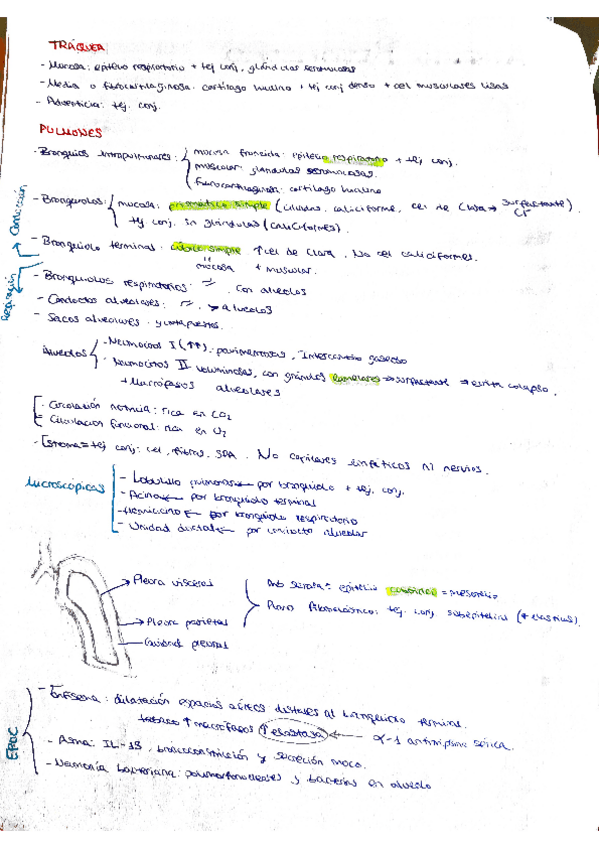 TRÁQUEA
- Mucosa: epitelio respiratorio + tej conj. glándulas seromucosas
- Media o fibrocartilaginosa: cartílago hialino + tej conj denso + cel musculares lisas
- Adventicia: tej. conj.
PULMONES
- Bronquios intrapulmonares: mucosa fruncida: epitelio respiratorio + tej conj.
muscular: glándulas seromucosas.
fibrocartilaginosa: cartílago hialino
- Bronquiolos: mucosa: prismático simple (ciliadas, caliciforme, cel de Clara → surfactante).
tej conj. sin glándulas (caliciformes).
Conducción
- Bronquiolo terminal: cúbico simple ↑ cel de Clara. No cel caliciformes.
mucosa + muscular.
Respiración
- Bronquiolos respiratorios: con alveolos
- Conductos alveolares: > alveolos
- Sacos alveolares
Alveolos - Neumocitos I (↑↑): pavimentosas, intercambio gaseoso
- Neumocitos II: voluminosas, con gránulos lamelares → surfactante → evita colapso.
+ Macrófagos alveolares
- Circulación nutricia: rica en CO2
- Circulación funcional: rica en O2
- Estroma = tej conj: cel, fibras, SFA. No capilares linfáticos ni nervios.
Microscópicas
- Lobulillo pulmonar ← por bronquiolo + tej. conj.
- Acino ← por bronquiolo terminal
- Hemiacino ← por bronquiolo respiratorio
- Unidad ductal ← por conducto alveolar
Pleura visceral
Pleura parietal
Cavidad pleural
serosa: epitelio = mesotelio
Plano fibroelástico: tej. conj. subepitelial (+ elásticas).
EPOC
- Enfisema: dilatación espacios aéreos distales al bronquiolo terminal.
tabaco ↑ macrófagos ↑ elastasa ← α-1 antitripsina sérica.
- Asma: IL-13, broncoconstricción y secreción moco.
- Neumonía bacteriana: polimorfonucleares y bacterias en alveolo